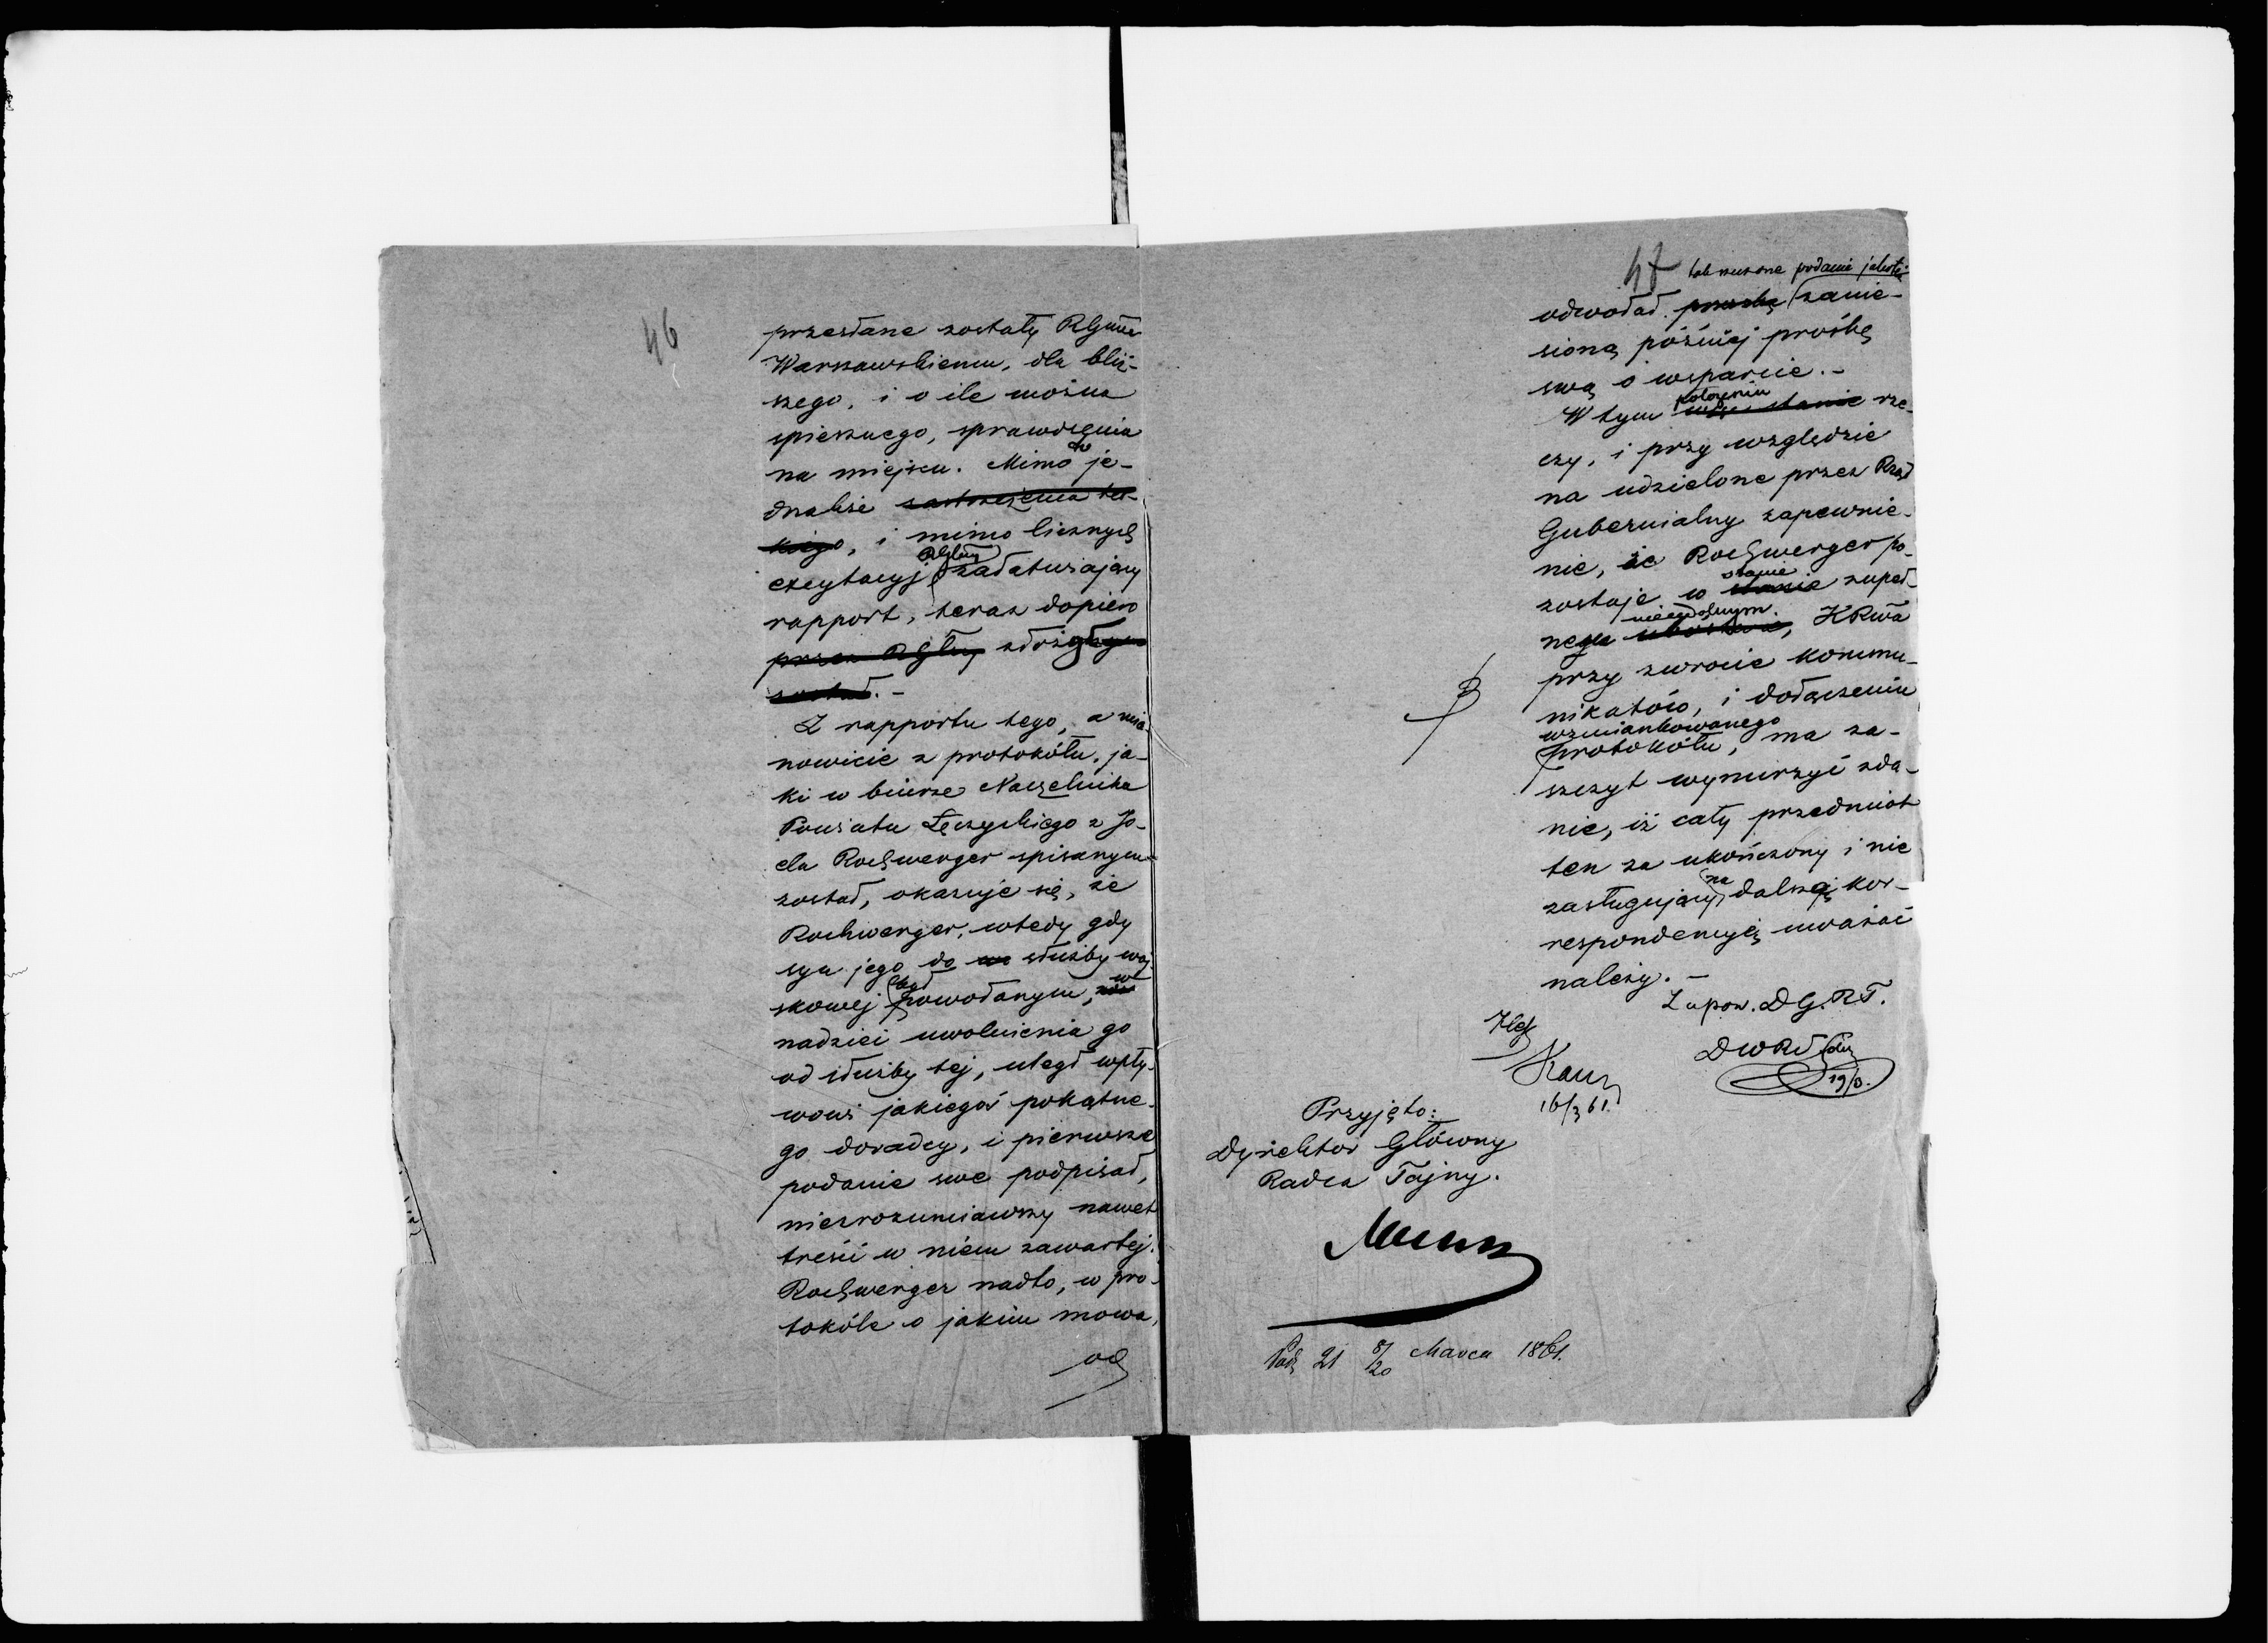 46
przesłane zostały RGmu
Warszawskiemu, dla bliż-
szego, i o ile można
spiesznego, sprawdzenia
na miejscu. Mimo to je-
dnakże zastrzeżenia ta-
kiego, i mimo licznych
excytacyj, RGlny załatwiający
rapport, teraz dopiero
przez RGlny złożył
został. -
Z rapportu tego, a mia-
nowicie z protokółu, ja-
ki w biurze Naczelnika
Powiatu Łęczyckiego z Jo-
ela Rochwerger spisanym
został, okazuje się, że
Rochwerger, wtedy gdy
syn jego do służby woj-
skowej był powołanym, w
nadziei uwolnienia go
od służby tej, uległ wpły-
wowi jakiegoś pokątne-
go doradcy, i pierwsze
podanie swe podpisał,
niezrozumiawszy nawet
treści w niem zawartej.
Rochwerger nadto, w pro-
tokóle o jakim mowa,
od
47
tak rzeczone podanie jakoteż
odwołał prośbę zanie-
sioną później prośbę
swą o wsparcie. -
W tym położeniu stanie rze-
czy, i przy względzie
na udzielone przez Rząd
Gubernialny zapewnie-
nie, że Rochwerger po-
zostaje w stanie zupeł-
nego niezdolnym, KRwa
przy zwrocie kommu-
nikatów, i dołączeniu
wzmiankowanego
protokółu, ma za-
szczyt wynurzyć zda-
nie, iż cały przedmiot
ten za ukończony i nie
zasługujący na dalszą kor-
respondencyę uważać
należy. -
Z upow. DG.RT.
16/3 61.
19/3.
Przyjęto:
Dyrektor Główny
Radca Tajny.
21 8/20 Marca 1861.